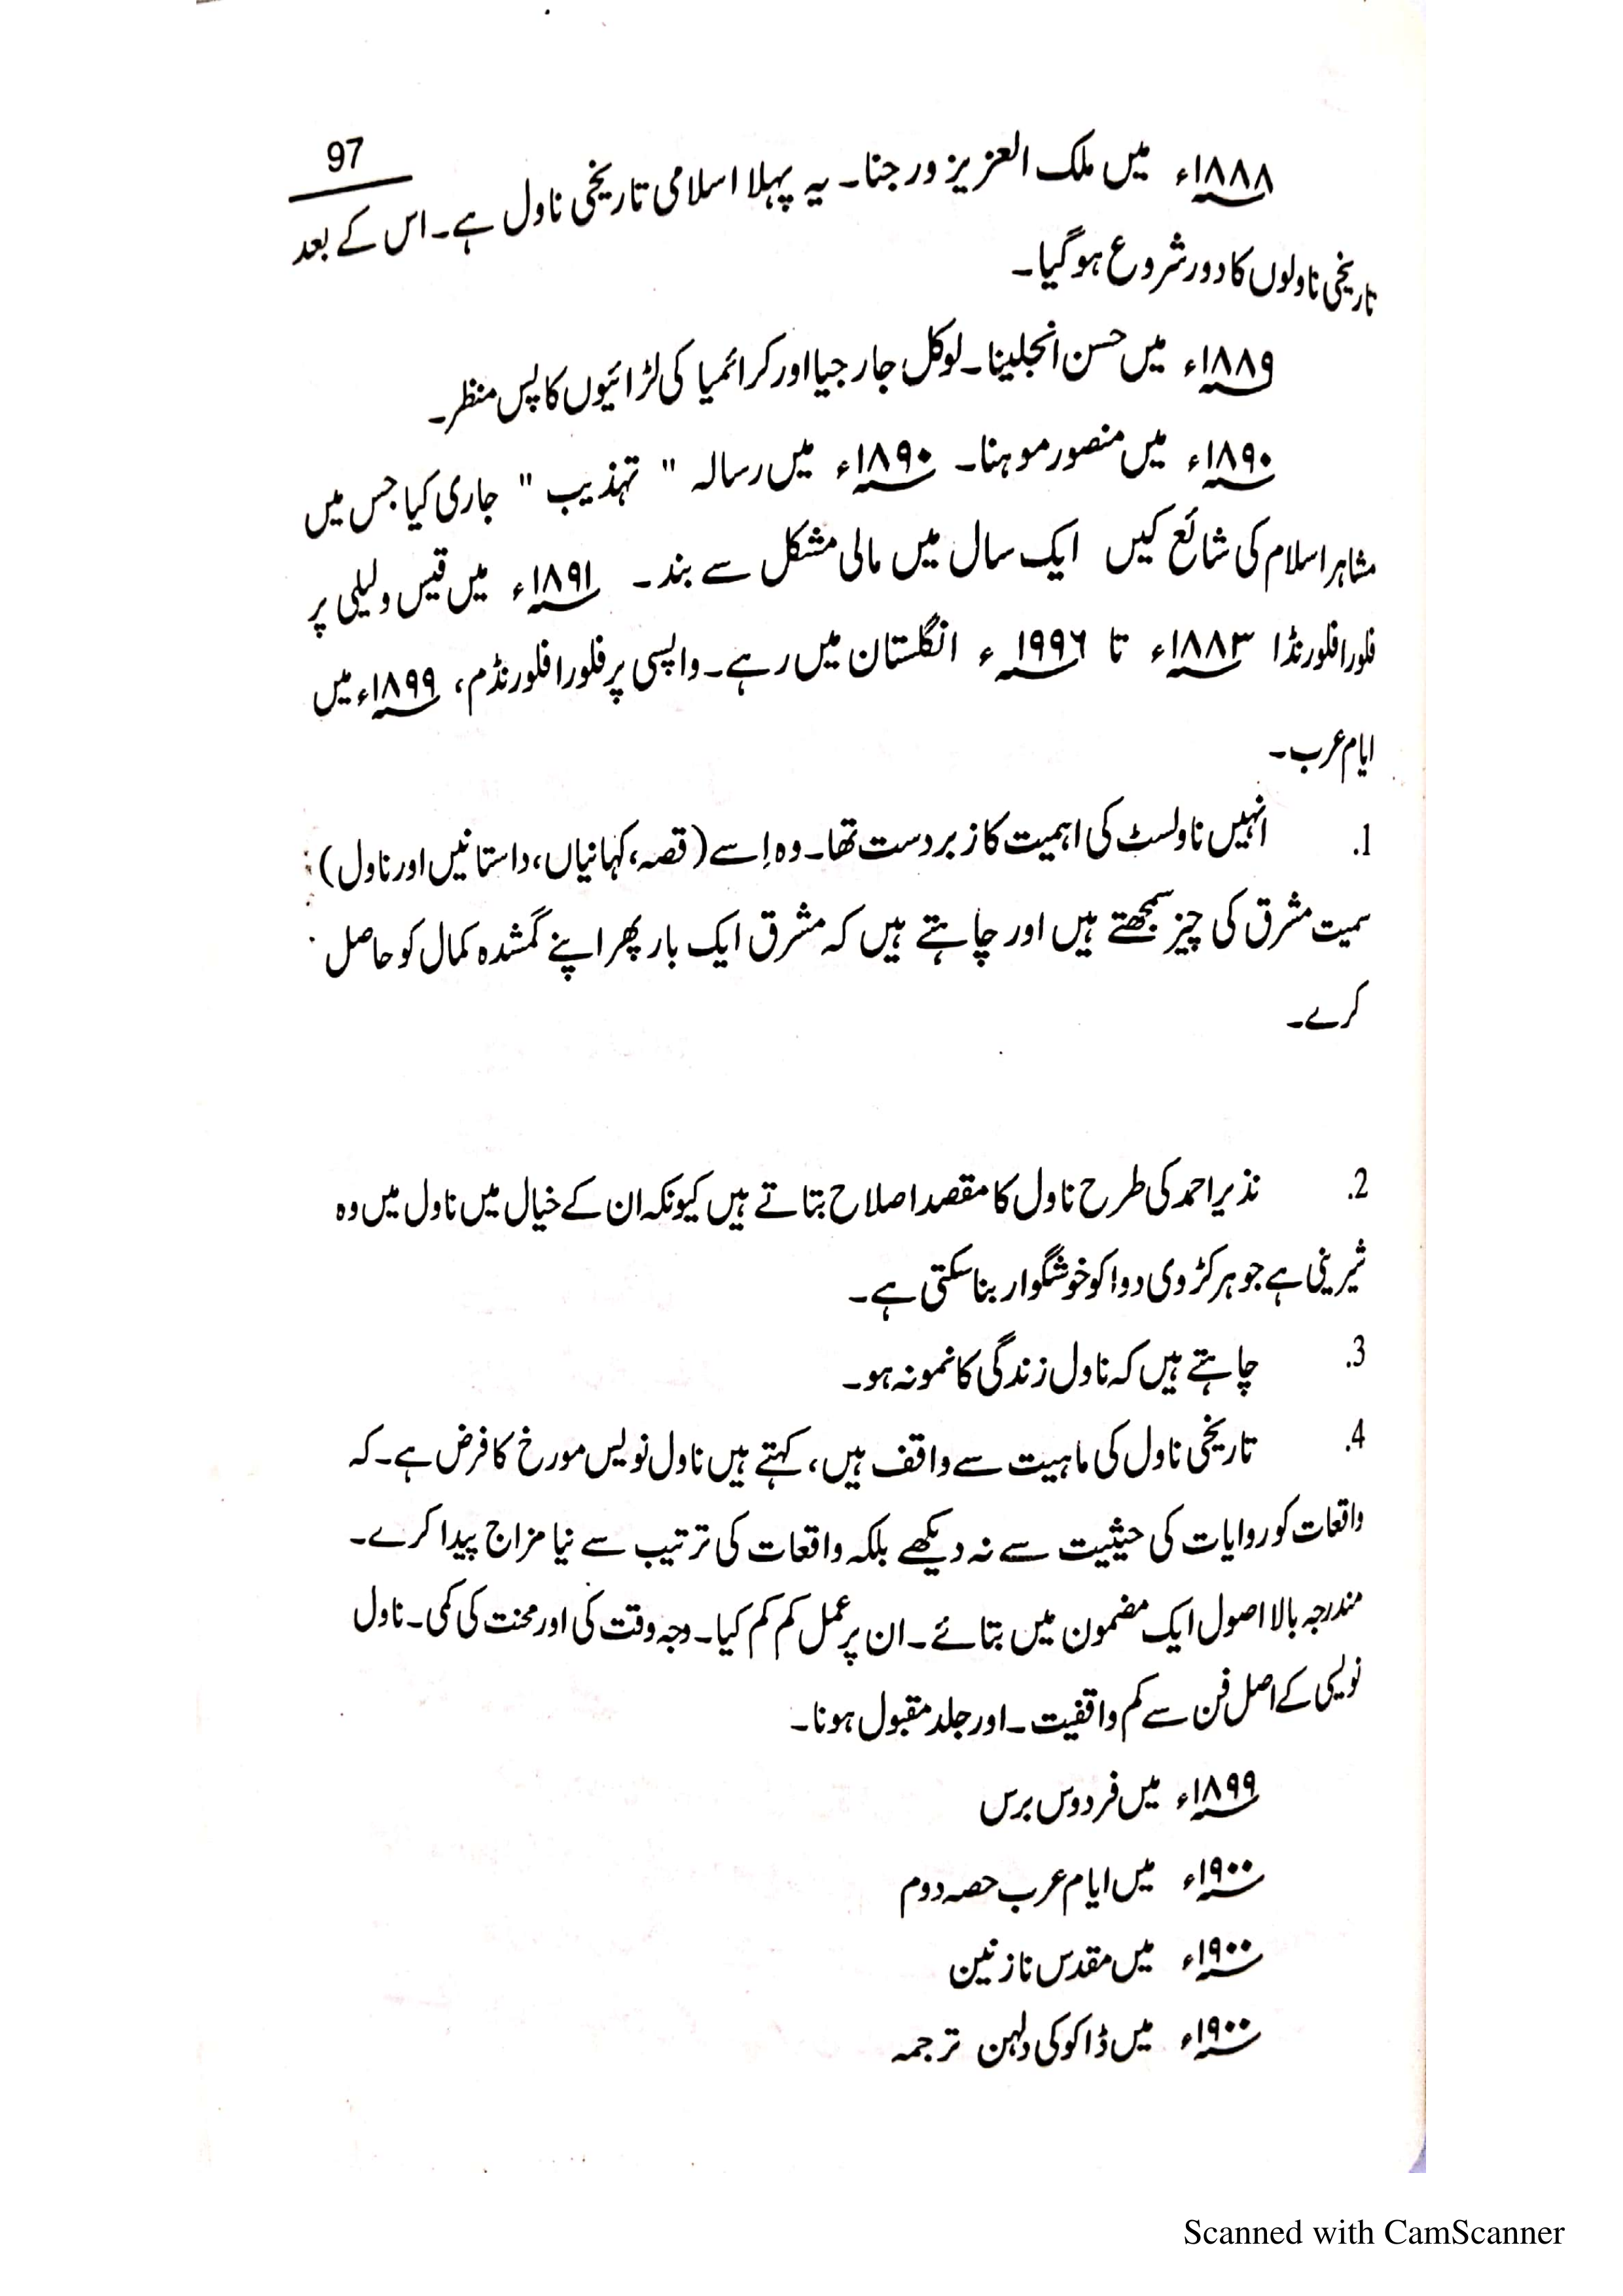 97
۱۸۸۸ء میں ملک العزیز ورجنا۔ یہ پہلا اسلامی تاریخی ناول ہے۔ اس کے بعد
تاریخی ناولوں کا دور شروع ہو گیا۔
۱۸۸۹ء میں حسن انجلینا۔ لوکل جارجیا اور کرائمیا کی لڑائیوں کا پس منظر۔
۱۸۹۰ء میں منصور موہنا۔ ۱۸۹۰ء میں رسالہ " تہذیب " جاری کیا جس میں
مشاہر اسلام کی شائع کیں ایک سال میں مالی مشکل سے بند۔ ۱۸۹۱ء میں قیس ولیلی پر
فلورافلورنڈا ۱۸۸۳ء تا ۱۹۹۶ء انگلستان میں رہے۔ واپسی پر فلورافلورنڈم، ۱۸۹۹ء میں
ایام عرب۔
1. انہیں ناولسٹ کی اہمیت کا زبردست تھا۔ وہ اِسے (قصہ، کہانیاں، داستانیں اور ناول)
سمیت مشرق کی چیز سمجھتے ہیں اور چاہتے ہیں کہ مشرق ایک بار پھر اپنے گمشدہ کمال کو حاصل
کرے۔
2. نذیر احمد کی طرح ناول کا مقصد اصلاح بتاتے ہیں کیونکہ ان کے خیال میں ناول میں وہ
شیرینی ہے جو ہر کڑوی دوا کو خوشگوار بنا سکتی ہے۔
3. چاہتے ہیں کہ ناول زندگی کا نمونہ ہو۔
4. تاریخی ناول کی ماہیت سے واقف ہیں، کہتے ہیں ناول نویس مورخ کا فرض ہے۔ کہ
واقعات کو روایات کی حیثیت سے نہ دیکھے بلکہ واقعات کی ترتیب سے نیا مزاج پیدا کرے۔
مندرجہ بالا اصول ایک مضمون میں بتائے۔ ان پر عمل کم کم کیا۔ وجہ وقت کی اور محنت کی کمی۔ ناول
نویسی کے اصل فن سے کم واقفیت۔ اور جلد مقبول ہونا۔
۱۸۹۹ء میں فردوس برس
۱۹۰۰ء میں ایام عرب حصہ دوم
۱۹۰۰ء میں مقدس نازنین
۱۹۰۰ء میں ڈاکو کی دلہن ترجمہ
Scanned with CamScanner